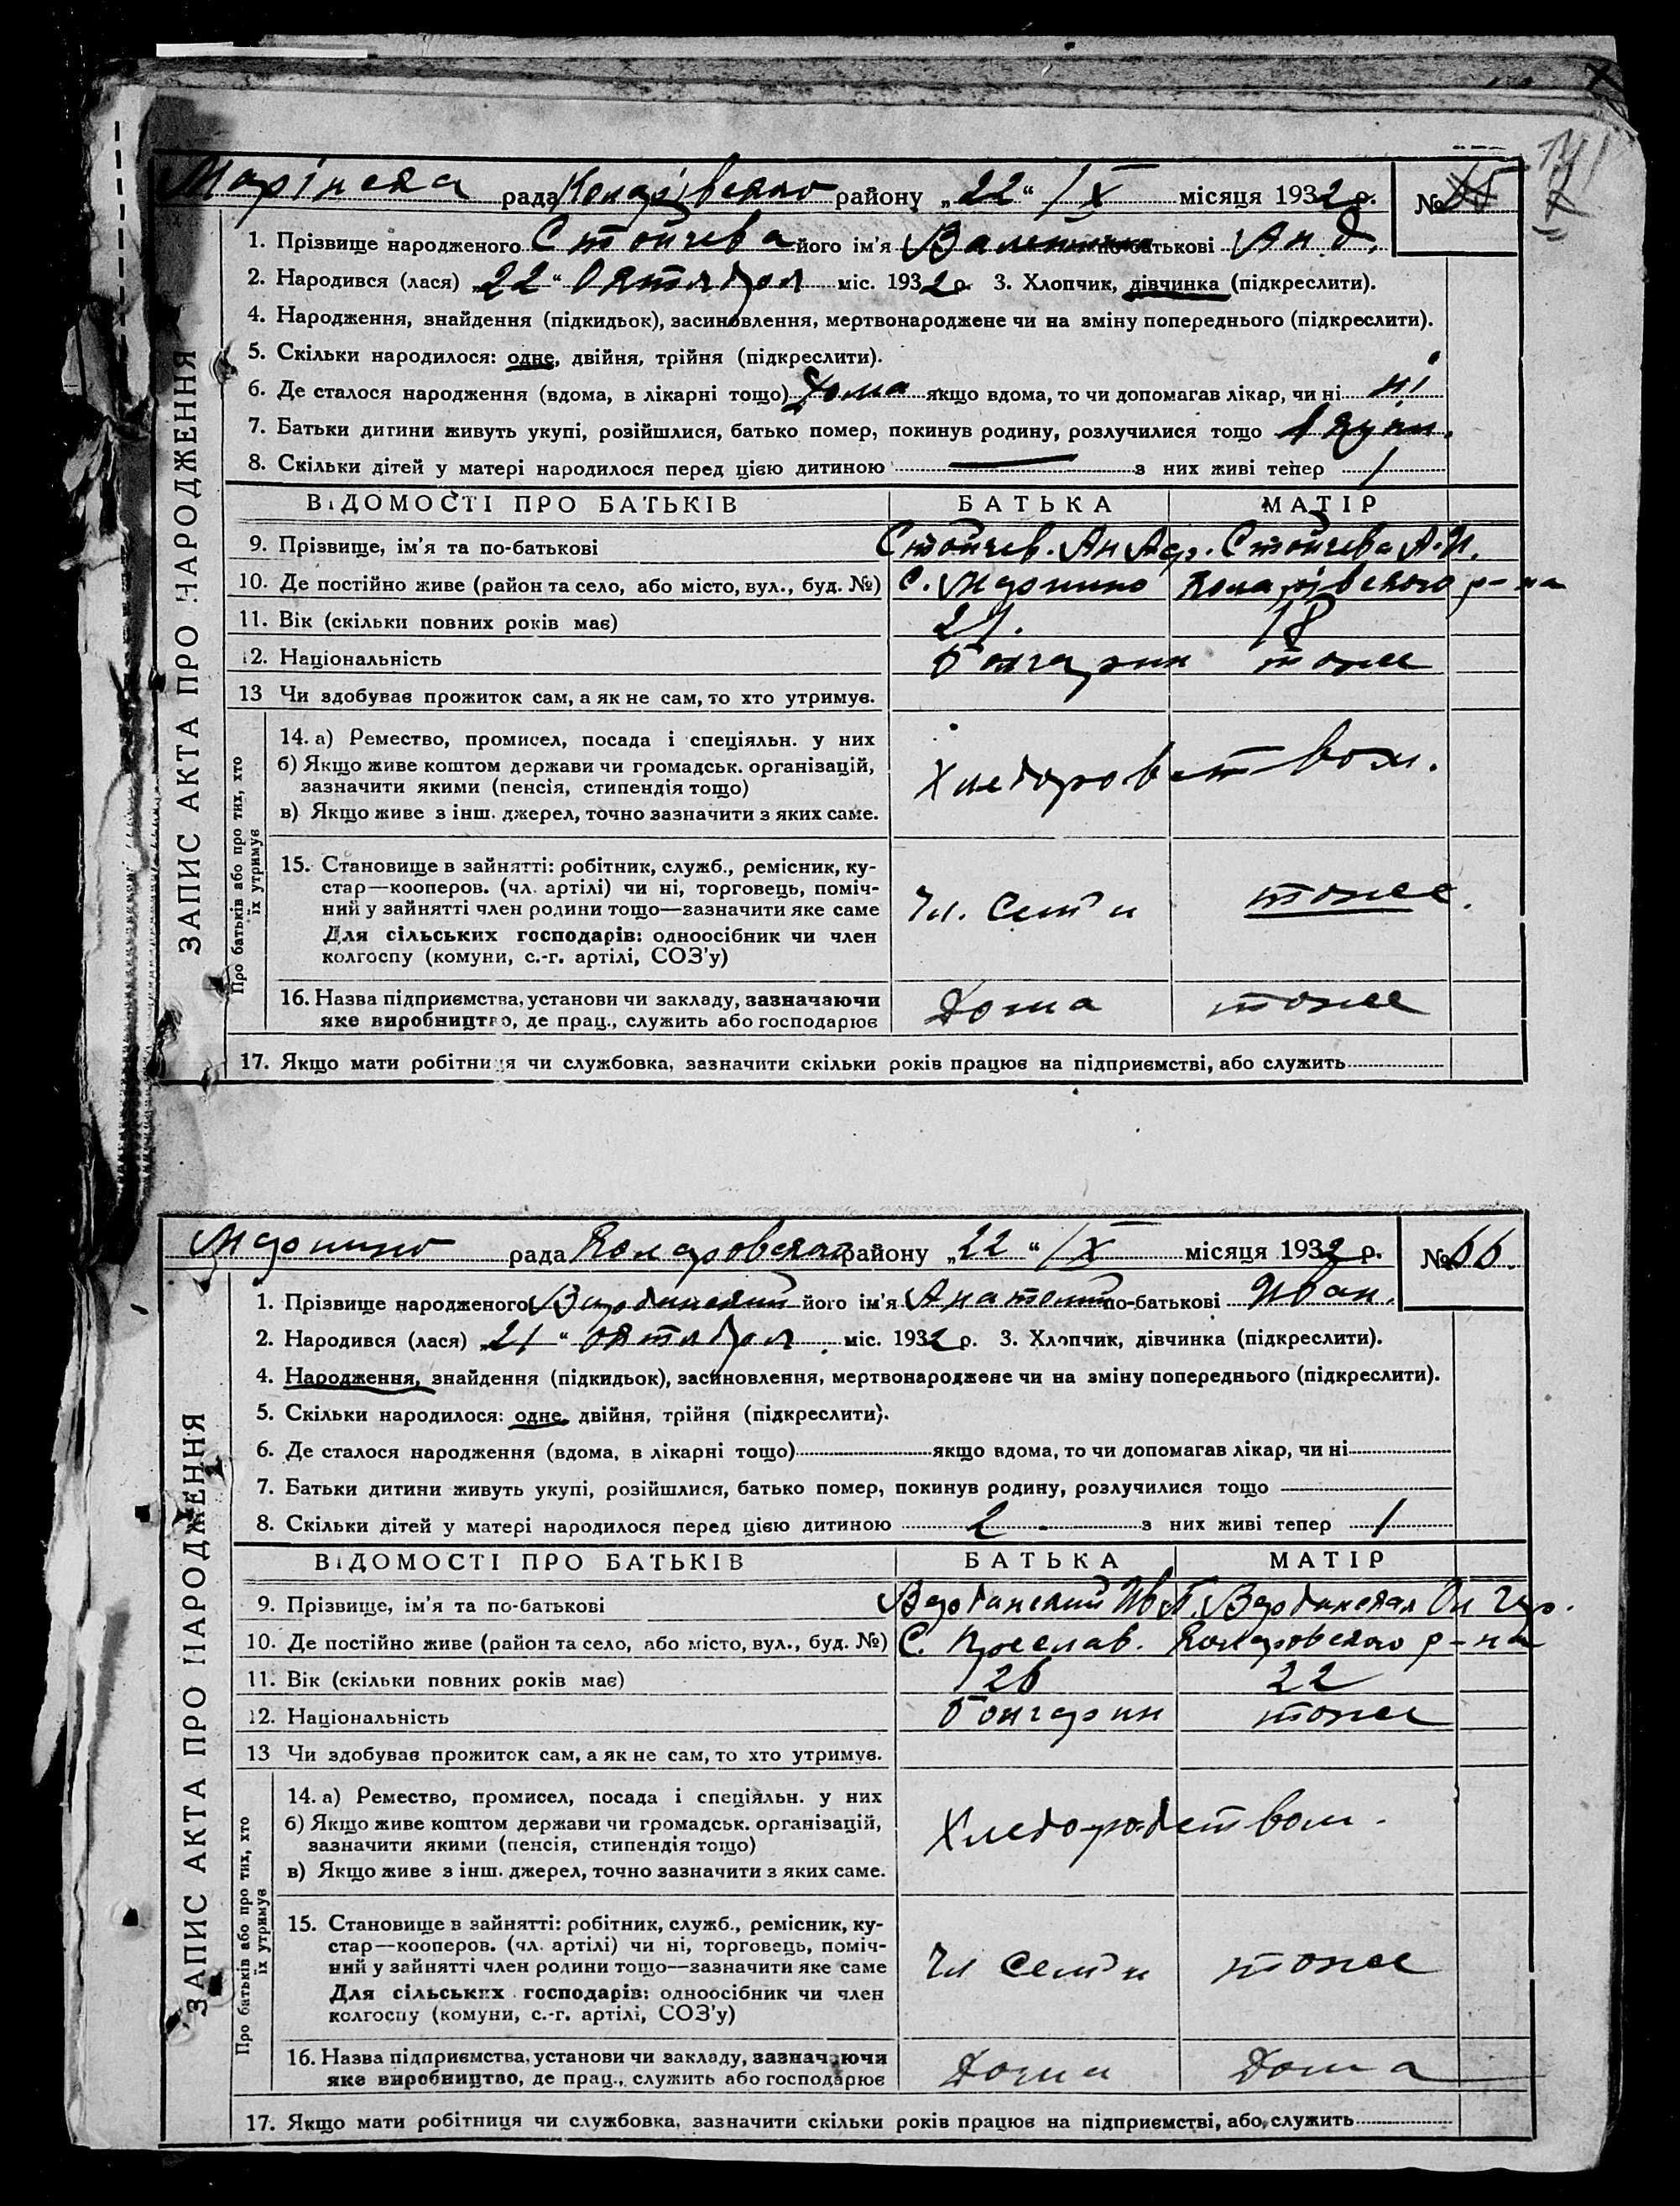 Марінска рада Коларівского району „22“ /ІХ місяця 1932 р. №
1. Прізвище народженого Стойчева його ім'я Валентина по-батькові Анд.
2. Народився (лася) „22“ Октября міс. 1932 р. 3. Хлопчик, дівчинка (підкреслити).
4. Народження, знайдення (підкидьок), засиновлення, мертвонароджене чи на зміну попереднього (підкреслити).
5. Скільки народилося: одне, двійня, трійня (підкреслити).
6. Де сталося народження (вдома, в лікарні тощо) Дома якщо вдома, то чи допомагав лікар, чи ні ні
7. Батьки дитини живуть укупі, розійшлися, батько помер, покинув родину, розлучилися тощо
8. Скільки дітей у матері народилося перед цією дитиною — з них живі тепер 1
ВІДОМОСТІ ПРО БАТЬКІВ БАТЬКА МАТІР
9. Прізвище, ім'я та по-батькові Стойчев. Ан Стойчева А.И.
10. Де постійно живе (район та село, або місто, вул., буд. №) С. Коларівского р-на
11. Вік (скільки повних років має) 21. 18
12. Національність Болгарин тоже
13 Чи здобуває прожиток сам, а як не сам, то хто утримує.
14. а) Ремество, промисел, посада і спеціяльн. у них
б) Якщо живе коштом держави чи громадськ. організацій,
зазначити якими (пенсія, стипендія тощо)
в) Якщо живе з інш. джерел, точно зазначити з яких саме.
Хлеборобством.
15. Становище в зайнятті: робітник, служб., ремісник, ку-
стар—кооперов. (чл. артілі) чи ні, торговець, поміч-
ний у зайнятті член родини тощо—зазначити яке саме
Для сільських господарів: одноосібник чи член
колгоспу (комуни, с.-г. артілі, СОЗ'у)
Чл. Семьи тоже.
16. Назва підприємства, установи чи закладу, зазначаючи
яке виробництво, де прац., служить або господарює
Дома тоже
17. Якщо мати робітниця чи службовка, зазначити скільки років працює на підприємстві, або служить
ЗАПИС АКТА ПРО НАРОДЖЕННЯ
Про батьків або про тих, хто
їх утримує
рада Коларовского району „22“ /ІХ місяця 1932 р. № 66.
1. Прізвище народженого Вербанский його ім'я Анатолий по-батькові Иван.
2. Народився (лася) „21“ октября міс. 1932 р. 3. Хлопчик, дівчинка (підкреслити).
4. Народження, знайдення (підкидьок), засиновлення, мертвонароджене чи на зміну попереднього (підкреслити).
5. Скільки народилося: одне, двійня, трійня (підкреслити).
6. Де сталося народження (вдома, в лікарні тощо) якщо вдома, то чи допомагав лікар, чи ні
7. Батьки дитини живуть укупі, розійшлися, батько помер, покинув родину, розлучилися тощо
8. Скільки дітей у матері народилося перед цією дитиною 2 з них живі тепер 1
ВІДОМОСТІ ПРО БАТЬКІВ БАТЬКА МАТІР
9. Прізвище, ім'я та по-батькові Вербанский Ив П. Вербанская
10. Де постійно живе (район та село, або місто, вул., буд. №) С. Преслав. Коларовского р-на
11. Вік (скільки повних років має) 26 22
12. Національність Болгарин тоже
13 Чи здобуває прожиток сам, а як не сам, то хто утримує.
14. а) Ремество, промисел, посада і спеціяльн. у них
б) Якщо живе коштом держави чи громадськ. організацій,
зазначити якими (пенсія, стипендія тощо)
в) Якщо живе з інш. джерел, точно зазначити з яких саме.
Хлеборобством.
15. Становище в зайнятті: робітник, служб., ремісник, ку-
стар—кооперов. (чл. артілі) чи ні, торговець, поміч-
ний у зайнятті член родини тощо—зазначити яке саме
Для сільських господарів: одноосібник чи член
колгоспу (комуни, с.-г. артілі, СОЗ'у)
Чл Семьи тоже
16. Назва підприємства, установи чи закладу, зазначаючи
яке виробництво, де прац., служить або господарює
Дома Дома
17. Якщо мати робітниця чи службовка, зазначити скільки років працює на підприємстві, або служить
ЗАПИС АКТА ПРО НАРОДЖЕННЯ
Про батьків або про тих, хто
їх утримує